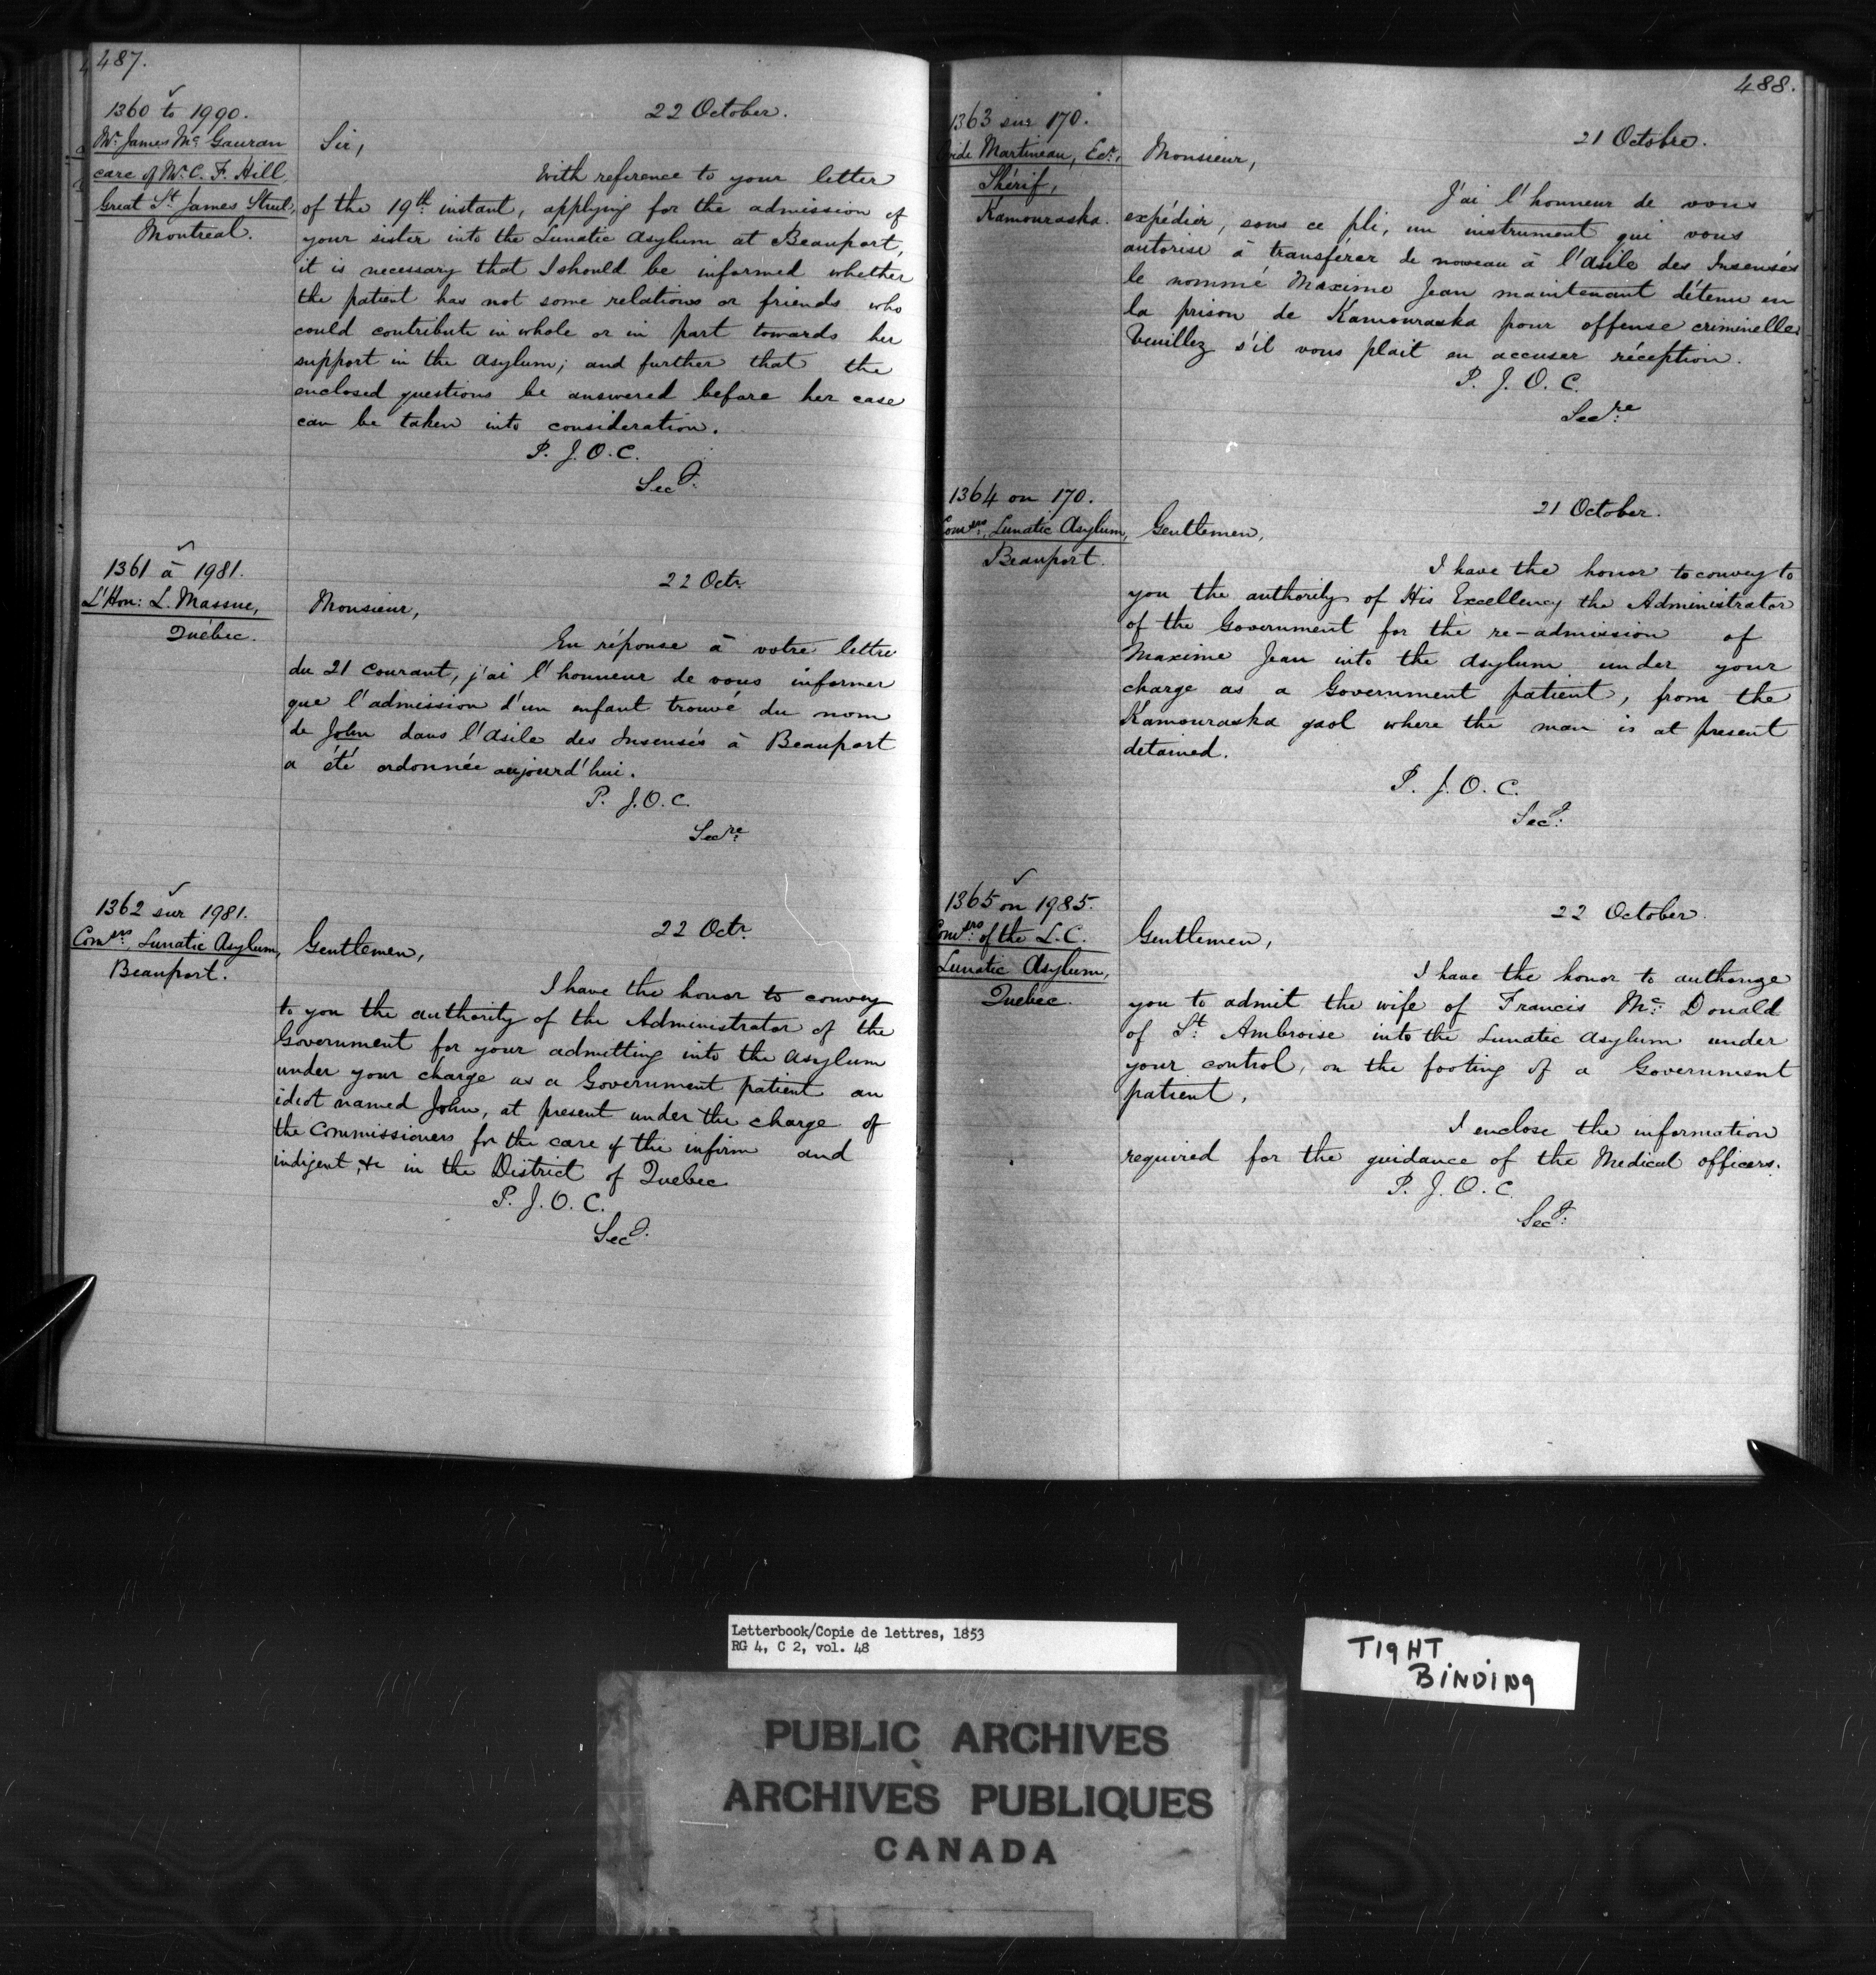 487.
1360 to 1990.
Mr. James Mc Gauran
care of Mr. C. F. Hill
Great St. James Street,
Montreal.
22 October.
Sir,
With reference to your letter
of the 19th instant, applying for the admission of
your sister into the Lunatic Asylum at Beauport,
it is necessary that I should be informed whether
the patient has not some relations or friends who
could contribute in whole or in part towards her
support in the Asylum; and further that the
enclosed questions be answered before her case
can be taken into consideration.
P. J. O. C.
Secy.
1361 à 1981.
L'Hon: L. Massue,
Québec.
22 Octr.
Monsieur,
En réponse à votre lettre
du 21 courant, j'ai l'honneur de vous informer
que l'admission d'un enfant trouvé du nom
de John dans l'Asile des Insensés à Beauport
a été ordonnée aujourd'hui.
P. J. O. C.
Secre.
1362 sur 1981.
Comsrs. Lunatic Asylum,
Beauport.
22 Octr.
Gentlemen,
I have the honor to convey
to you the authority of the Administrator of the
Government for your admitting into the Asylum
under your charge as a Government patient an
idiot named John, at present under the charge of
the Commissioners for the care of the infirm and
indigent &c in the District of Quebec
P. J. O. C.
Secy.
488.
1363 sur 170.
Martineau, Ecr.,
Shérif,
Kamouraska.
21 Octobre.
Monsieur,
J'ai l'honneur de vous
expédier, sous ce pli, un instrument qui vous
autorise à transférer de nouveau à l'Asile des Insensés
le nommé Maxime Jean maintenant détenu en
la prison de Kamouraska pour offense criminelle.
Veuillez s'il vous plait en accuser réception.
P. J. O. C.
Secre.
1364 on 170.
Comsrs. Lunatic Asylum,
Beauport.
21 October.
Gentlemen,
I have the honor to convey to
you the authority of His Excellency the Administrator
of the Government for the re-admission of
Maxime Jean into the Asylum under your
charge as a Government patient, from the
Kamouraska gaol where the man is at present
detained.
P. J. O. C.
Secy.
1365 on 1985.
Comsrs. of the L. C.
Lunatic Asylum,
Quebec.
22 October.
Gentlemen,
I have the honor to authorize
you to admit the wife of Francis Mc. Donald
of St. Ambroise into the Lunatic Asylum under
your control, on the footing of a Government
patient.
I enclose the information
required for the guidance of the Medical officers.
P. J. O. C.
Secy.
Letterbook/Copie de lettres, 1853
RG 4, C 2, vol. 48
TIGHT
BINDING
PUBLIC ARCHIVES
ARCHIVES PUBLIQUES
CANADA